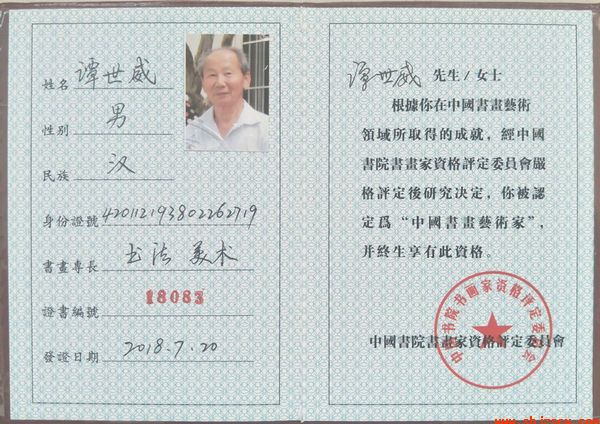 姓名 谭世威
性别 男
民族 汉
身份證號 420112193802262719
書畫專長 书法 美术
證書編號 18083
發證日期 2018.7.20
谭世威 先生/女士
根據你在中國書畫藝術
領域所取得的成就，經中國
書院書畫家資格評定委員會嚴
格評定後研究决定，你被認
定爲“中國書畫藝術家”，
并終生享有此資格。
中國書院書畫家資格評定委員會
中国书院书画家资格评定委员会